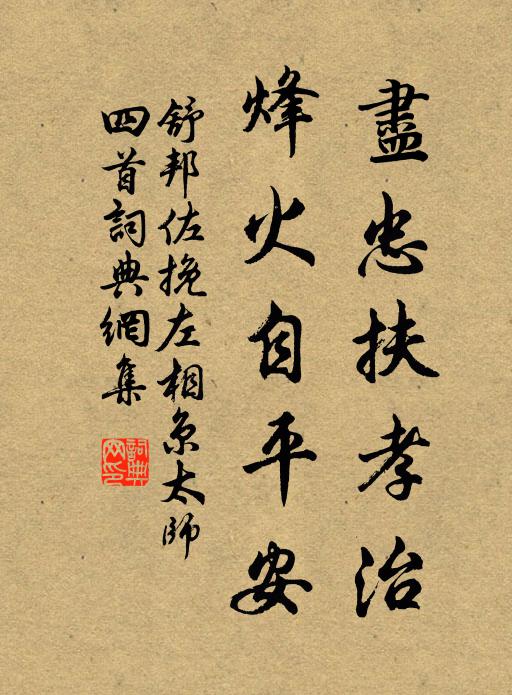 盡忠扶孝治
烽火自平安
舒邦佐挽左相京太師
四首詞典網集
詞典網印